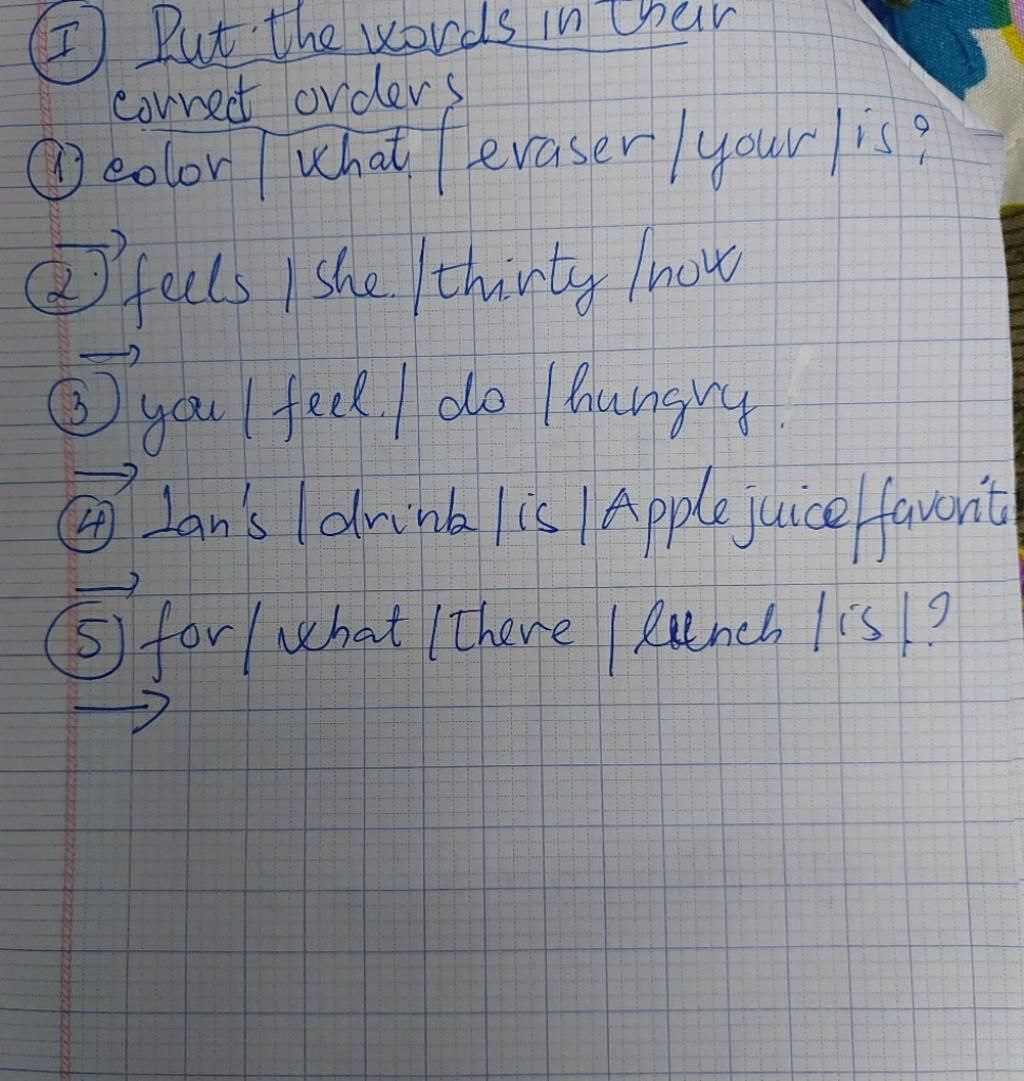 I Put the words in their
correct orders
1 color / what / eraser / your / is ?
2 feels / she / thirty / now
3 you / feel / do / hungry
4 Ian's / drink / is / Apple juice / favorite
5 for / what / there / lunch / is / ?